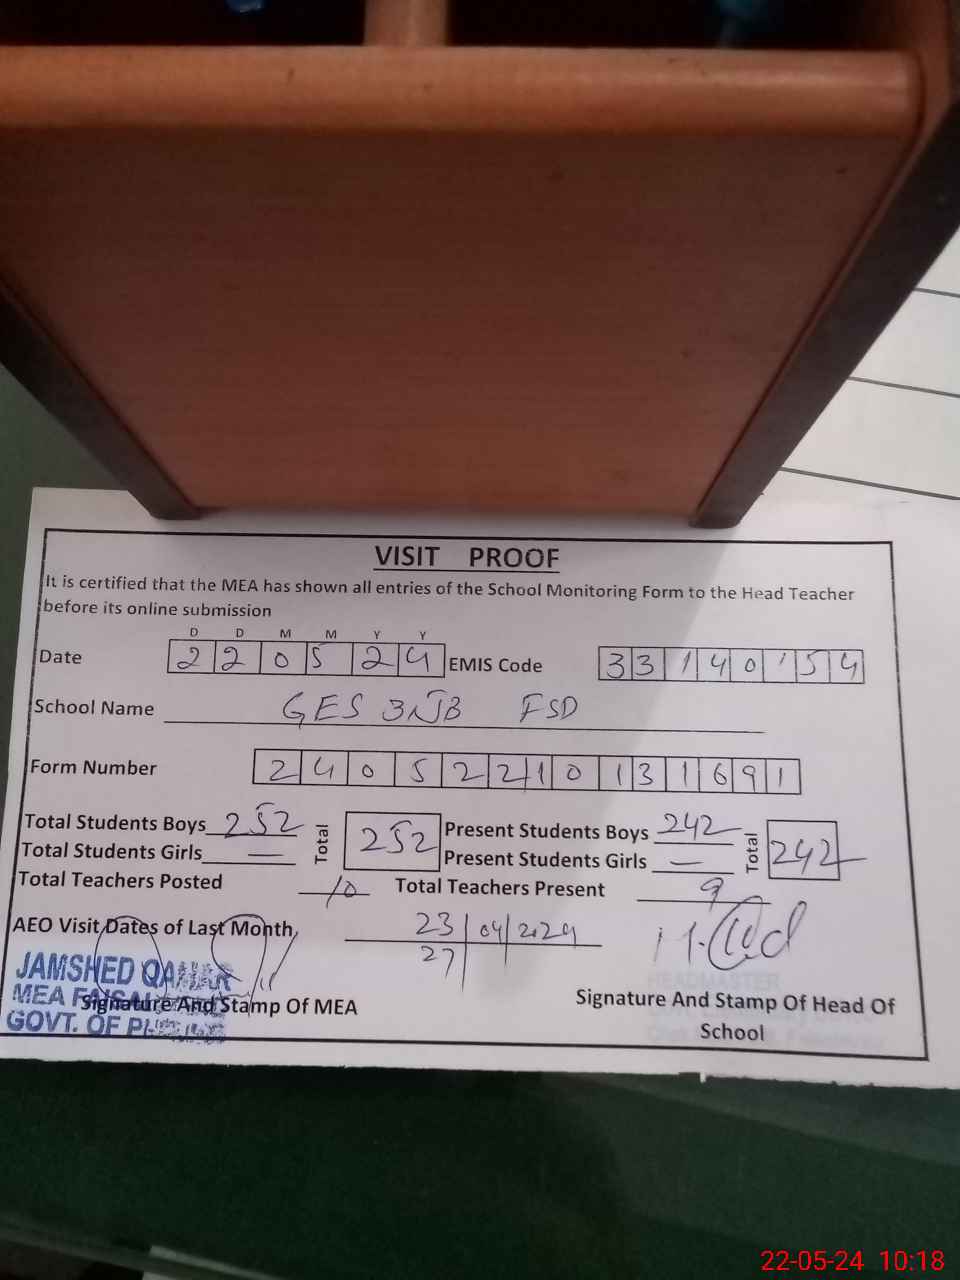 VISIT PROOF
It is certified that the MEA has shown all entries of the School Monitoring Form to the Head Teacher
before its online submission
D D M M Y Y
Date 2 2 0 5 2 4 EMIS Code 3 3 1 4 0 1 5 4
School Name GES 3 JB FSD
Form Number 2 4 0 5 2 2 1 0 1 3 1 6 9 1
Total Students Boys 252 Total 252 Present Students Boys 242 Total 242
Total Students Girls — Present Students Girls —
Total Teachers Posted 10 Total Teachers Present 9
AEO Visit Dates of Last Month 23/04/2024
27
JAMSHED
MEA
GOVT. OF
Signature And Stamp Of MEA
HEADMASTER
Signature And Stamp Of Head Of
School
22-05-24 10:18